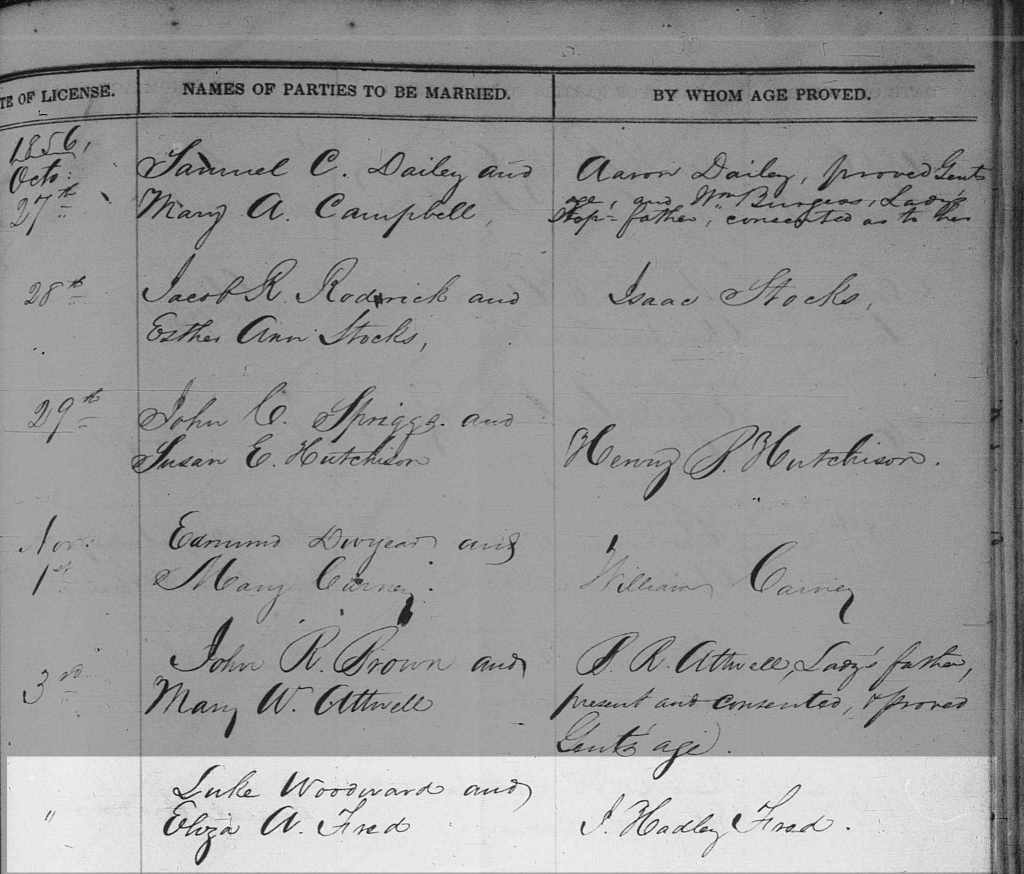 TE OF LICENSE. NAMES OF PARTIES TO BE MARRIED. BY WHOM AGE PROVED.
1856,
Octo: Samuel C. Dailey and Aaron Dailey, proved Gents
27th Mary A. Campbell, age, and Wm Burgess, Lady's
Step-father, consented as to her
28th Jacob R. Roderick and Isaac Stocks,
Esther Ann Stocks,
29th John C. Sprigg. and
Susan E. Hutchison Henry P. Hutchison.
Nov. Edmund Dwyear and
1st Mary Carney. William Carney
John R. Brown and B. R. Attwell, Lady's father,
3rd Mary W. Attwell present and consented, & proved
Gent's age.
Luke Woodward and
" Eliza A. Fred J. Hadley Fred.